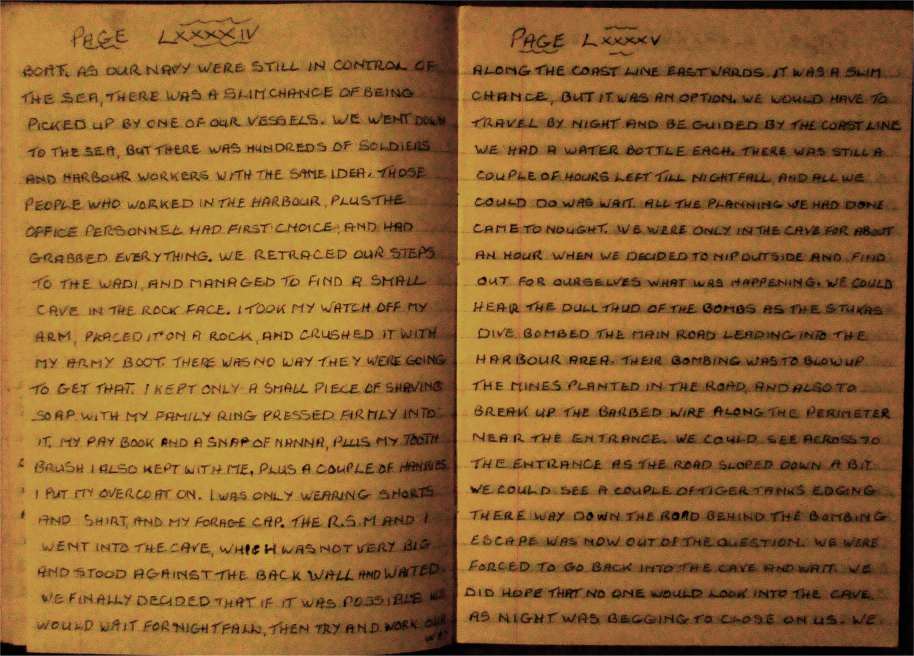 PAGE LXXXXIV
BOAT. AS OUR NAVY WERE STILL IN CONTROL OF
THE SEA, THERE WAS A SLIM CHANCE OF BEING
PICKED UP BY ONE OF OUR VESSELS. WE WENT DOWN
TO THE SEA, BUT THERE WAS HUNDREDS OF SOLDIERS
AND HARBOUR WORKERS WITH THE SAME IDEA. THOSE
PEOPLE WHO WORKED IN THE HARBOUR, PLUS THE
OFFICE PERSONNEL HAD FIRST CHOICE, AND HAD
GRABBED EVERYTHING. WE RETRACED OUR STEPS
TO THE WADI, AND MANAGED TO FIND A SMALL
CAVE IN THE ROCK FACE. I TOOK MY WATCH OFF MY
ARM, PLACED IT ON A ROCK, AND CRUSHED IT WITH
MY ARMY BOOT. THERE WAS NO WAY THEY WERE GOING
TO GET THAT. I KEPT ONLY A SMALL PIECE OF SHAVING
SOAP WITH MY FAMILY RING PRESSED FIRMLY INTO
IT. MY PAY BOOK AND A SNAP OF NANNA, PLUS MY TOOTH
BRUSH I ALSO KEPT WITH ME, PLUS A COUPLE OF HANKIES
I PUT MY OVERCOAT ON. I WAS ONLY WEARING SHORTS
AND SHIRT, AND MY FORAGE CAP. THE R.S.M AND I
WENT INTO THE CAVE, WHICH WAS NOT VERY BIG
AND STOOD AGAINST THE BACK WALL AND WAITED.
WE FINALLY DECIDED THAT IF IT WAS POSSIBLE WE
WOULD WAIT FOR NIGHTFALL, THEN TRY AND WORK OUR
PAGE LXXXXV
ALONG THE COAST LINE EASTWARDS. IT WAS A SLIM
CHANCE, BUT IT WAS AN OPTION. WE WOULD HAVE TO
TRAVEL BY NIGHT AND BE GUIDED BY THE COASTLINE
WE HAD A WATER BOTTLE EACH. THERE WAS STILL A
COUPLE OF HOURS LEFT TILL NIGHTFALL, AND ALL WE
COULD DO WAS WAIT. ALL THE PLANNING WE HAD DONE
CAME TO NOUGHT. WE WERE ONLY IN THE CAVE FOR ABOUT
AN HOUR WHEN WE DECIDED TO NIP OUTSIDE AND FIND
OUT FOR OURSELVES WHAT WAS HAPPENING. WE COULD
HEAR THE DULL THUD OF THE BOMBS AS THE STUKAS
DIVE BOMBED THE MAIN ROAD LEADING INTO THE
HARBOUR AREA. THEIR BOMBING WAS TO BLOW UP
THE MINES PLANTED IN THE ROAD, AND ALSO TO
BREAK UP THE BARBED WIRE ALONG THE PERIMETER
NEAR THE ENTRANCE. WE COULD SEE ACROSS TO
THE ENTRANCE AS THE ROAD SLOPED DOWN A BIT
WE COULD SEE A COUPLE OF TIGER TANKS EDGING
THERE WAY DOWN THE ROAD BEHIND THE BOMBING
ESCAPE WAS NOW OUT OF THE QUESTION. WE WERE
FORCED TO GO BACK INTO THE CAVE AND WAIT. WE
DID HOPE THAT NO ONE WOULD LOOK INTO THE CAVE
AS NIGHT WAS BEGGING TO CLOSE ON US. WE